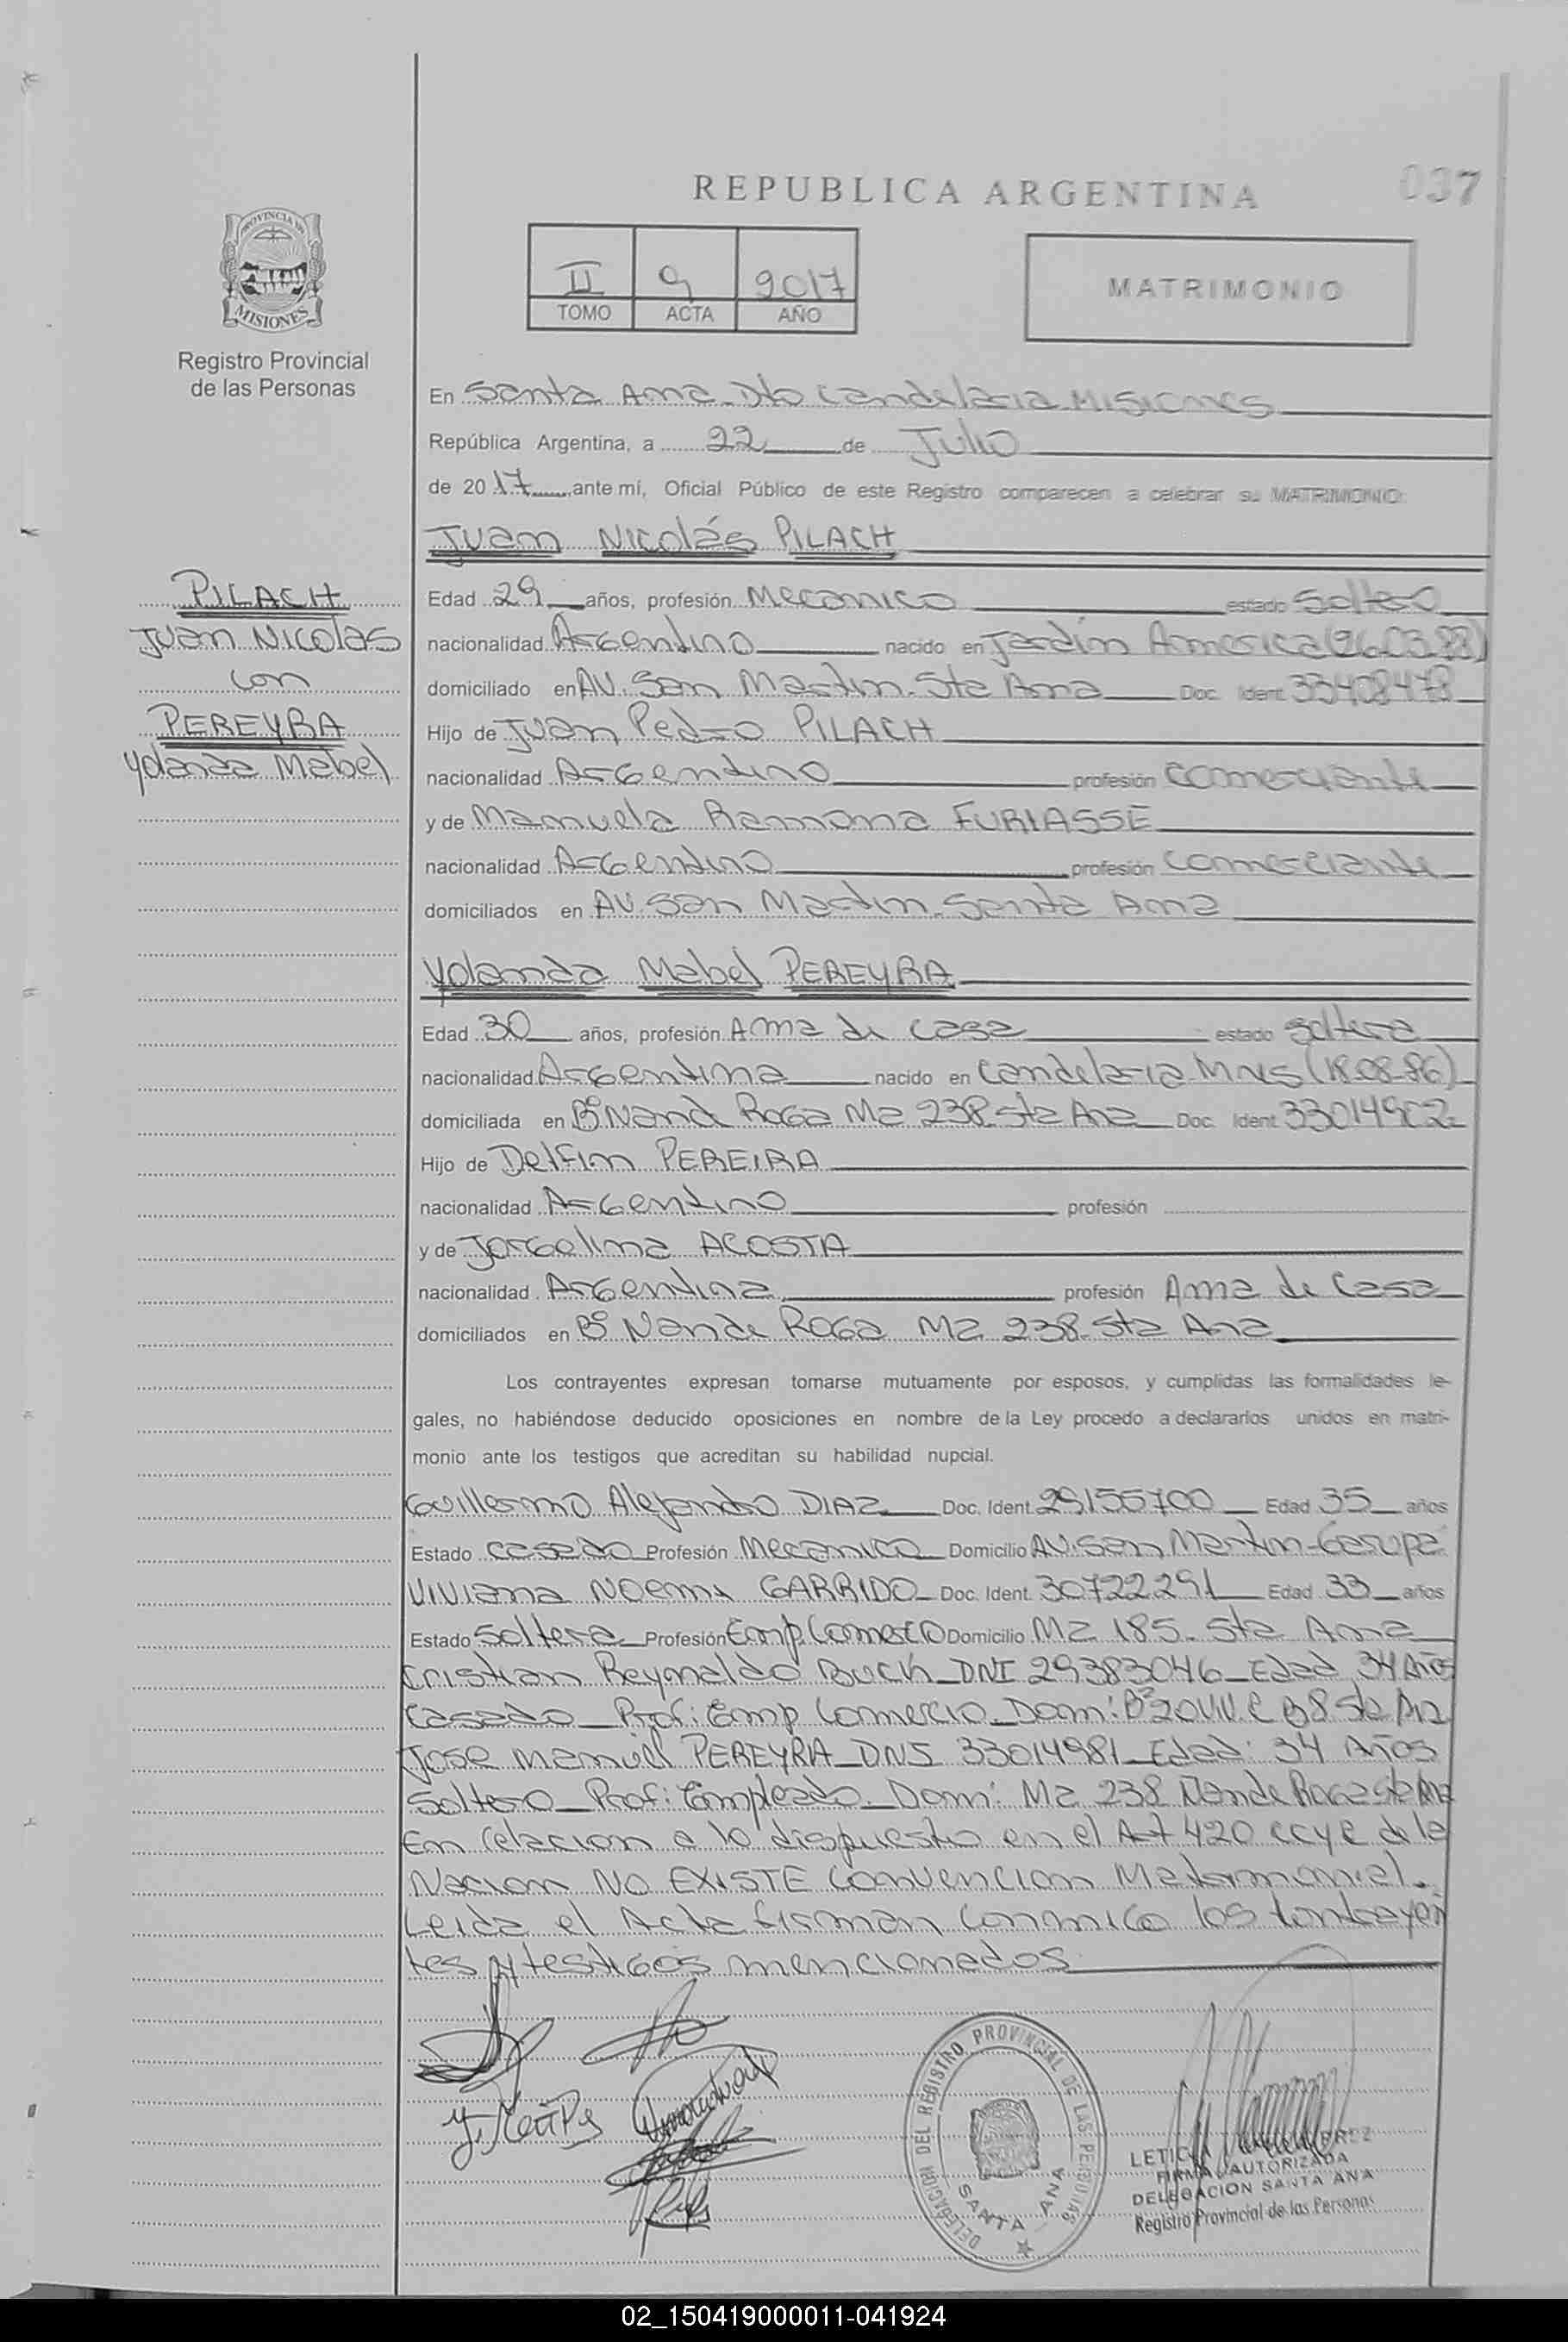 REPUBLICA ARGENTINA
037
PROVINCIA DE
MISIONES
Registro Provincial
de las Personas
II 9 2017
TOMO ACTA AÑO
MATRIMONIO
En Santa Ana-Dto Candelaria-Misiones
República Argentina, a 22 de Julio
de 2017, ante mí, Oficial Público de este Registro comparecen a celebrar su MATRIMONIO:
Juan Nicolás PILACH
PILACH
Juan Nicolas
con
PEREYRA
Yolanda Mabel
Edad 29 años, profesión Mecanico estado Soltero
nacionalidad Argentino nacido en Jardín America (26.03.88)
domiciliado en AV. San Martin. Sta Ana Doc. Ident. 33408478
Hijo de Juan Pedro PILACH
nacionalidad Argentino profesión Comerciante
y de Manuela Ramona FURIASSE
nacionalidad Argentino profesión Comerciante
domiciliados en AV. San Martin. Santa Ana
Yolanda Mabel PEREYRA
Edad 30 años, profesión Ama de Casa estado Soltera
nacionalidad Argentina nacido en Candelaria Mnes (18-08-86)
domiciliada en B° Nandé Roga Mz 238. Sta Ana Doc. Ident. 33014902
Hijo de Delfin PEREIRA
nacionalidad Argentino profesión
y de Jorgelina ACOSTA
nacionalidad Argentina profesión Ama de Casa
domiciliados en B° Nande Roga Mz 238. Sta Ana
Los contrayentes expresan tomarse mutuamente por esposos, y cumplidas las formalidades le-
gales, no habiéndose deducido oposiciones en nombre de la Ley procedo a declararlos unidos en matri-
monio ante los testigos que acreditan su habilidad nupcial.
Guillermo Alejandro DIAZ Doc. Ident. 29155700 Edad 35 años
Estado Casado Profesión Mecanico Domicilio AV. San Martin-Garupa
Viviana Noemi GARRIDO Doc. Ident. 30722291 Edad 33 años
Estado Soltera Profesión Emp. Comercio Domicilio Mz 185. Sta Ana
Cristian Reynaldo BUCH DNI 29383046 Edad 34 Años
Casado Prof: Emp Comercio. Dom: B° 20 Viv. C 8 Sta Ana
Jose Manuel PEREYRA DNI 33014981 Edad: 34 Años
Soltero Prof: Empleado. Dom: Mz 238 Nande Roga Sta Ana
En relacion a lo dispuesto en el Art 420 CCyC de la
Nacion NO EXISTE Convencion Matrimonial.
Leida el Acta firman conmigo los contrayen
tes y testigos mencionados
DELEGACION DEL REGISTRO PROVINCIAL DE LAS PERSONAS
SANTA ANA
FIRMA AUTORIZADA
DELEGACION SANTA ANA
Registro Provincial de las Personas
02_150419000011-041924